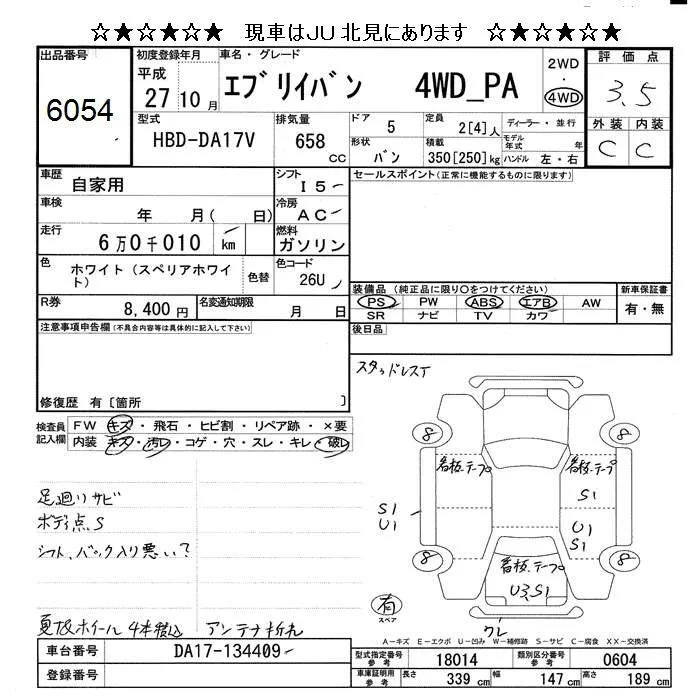 ☆★☆★☆★ 現車はJU北見にあります ☆★☆★☆★
出品番号
6054
初度登録年月
平成
27 10 月
車名・グレード
エブリイバン 4WD_PA
2WD
・
4WD
評価点
3.5
外装 内装
C C
型式
HBD-DA17V
排気量
658 cc
ドア 5
定員 2[4]人
ディーラー・並行
形状 バン
積載 350[250]kg
モデル年式 年
ハンドル 左・右
車歴 自家用
シフト I5
車検 年 月( 日)
冷房 AC
走行 6万0千010 km
燃料 ガソリン
色 ホワイト(スペリアホワイト)
色替
色コード 26U
R券 8,400円
名変通知期限 月 日
セールスポイント(正常に機能するものに限ります)
装備品(純正品に限り○をつけてください)
PS PW ABS エアB AW
SR ナビ TV カワ
新車保証書
有・無
後日品
注意事項申告欄(不具合内容等は具体的に記入して下さい)
修復歴 有[箇所 ]
検査員記入欄
FW キズ・飛石・ヒビ割・リペア跡・×要
内装 キズ・汚レ・コゲ・穴・スレ・キレ・破レ
スタッドレスT
足廻りサビ
ボデー点S
シフト、バック入り悪い?
夏タイヤホイール 4本積込 アンテナ折れ
8 8
看板.テープ 看板.テープ
S1
S1
U1
U1
S1
8 8
看板.テープ
U3.S1
有
スペア
クレ
A-キズ E-エクボ U-凹み W-補修跡 S-サビ C-腐食 XX-交換済
車台番号 DA17-134409
登録番号
型式指定番号 参考 18014
類別区分番号 参考 0604
車庫証明用 参考 長さ 339 cm 幅 147 cm 高さ 189 cm